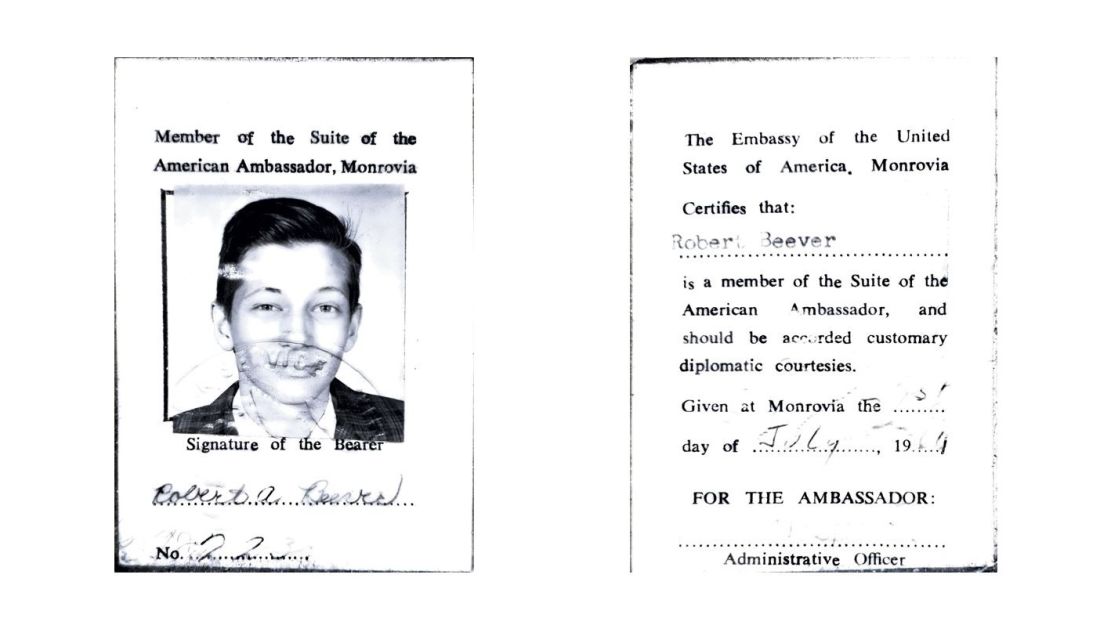 Member of the Suite of the
American Ambassador, Monrovia
Signature of the Bearer
Robert A. Beever
No. 22
The Embassy of the United
States of America, Monrovia
Certifies that:
Robert Beever
is a member of the Suite of the
American Ambassador, and
should be accorded customary
diplomatic courtesies.
Given at Monrovia the 1st
day of July, 1964
FOR THE AMBASSADOR:
Administrative Officer